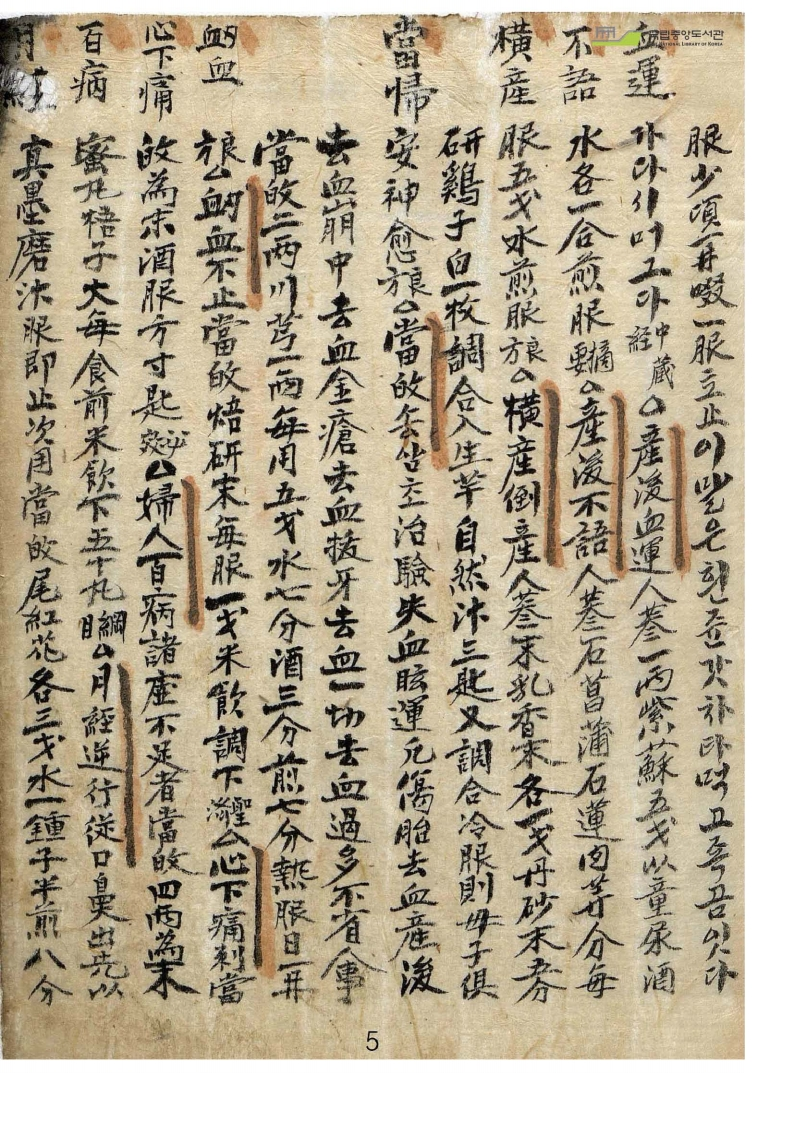 국립중앙도서관
NATIONAL LIBRARY OF KOREA
服少頃再啜一服立止이말은흰쥭갓차타먹고죡곰잇다
血運
가다시머그다中蔵経△産後血運人蔘一両紫蘇五戔以童尿酒
不語
水各一合煎服摘要△産後不語人蔘石菖蒲石蓮肉等分每
橫産
服五戔水煎服良方△橫産倒産人蔘末乳香末各一戔丹砂末五分
研鷄子白一枚調合入生芐自然汁三匙又調合冷服則母子俱
當帰
安神愈良方△當皈 治驗失血眩運凡傷胎去血産後
去血崩中去血金瘡去血拔牙去血一切去血過多不省人事
當皈二両川芎一両每用五戔水七分酒三分煎七分熱服日再
衂血
良方△衂血不止當皈焙研末每服一戔米飲調下聖濟△心下痛刺當
心下痛
皈為末酒服方寸匙必効△婦人百病諸虛不足者當皈四両為末
百病
蜜丸梧子大每食前米飲下五十丸綱目△月経逆行從口鼻出先以
月経
真墨磨汁服即止次用當皈尾紅花各三戔水一鍾子半煎八分
5